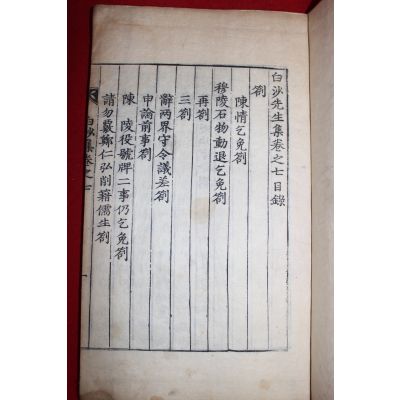 白沙先生集卷之七目錄
劄
陳情乞免劄
穆陵石物動退乞免劄
再劄
三劄
辭兩界守令議差劄
申論前事劄
陳 陵役號牌二事仍乞免劄
請勿覈鄭仁弘削籍儒生劄
白沙集卷之七 一